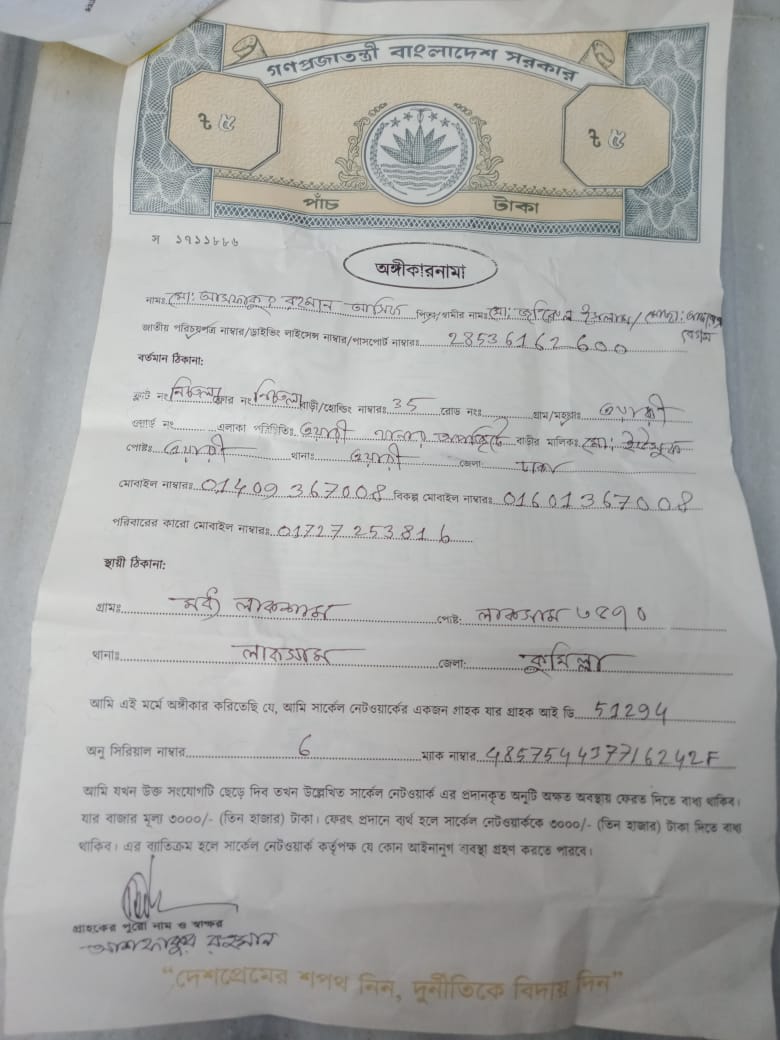 গণপ্রজাতন্ত্রী বাংলাদেশ সরকার
৳ ৫
৳ ৫
পাঁচ টাকা
স ১৭১১৮৮৬
অঙ্গীকারনামা
নামঃ মো: আশফাকুর রহমান আসিফ পিতা/স্বামীর নামঃ মো: জহিরুল ইসলাম/ মোছা: বেগম
জাতীয় পরিচয়পত্র নাম্বার/ড্রাইভিং লাইসেন্স নাম্বার/পাসপোর্ট নাম্বারঃ 28536162600
বর্তমান ঠিকানা:
ফ্লাট নং নিচতলা ফ্লোর নং নিচতলা বাড়ী/হোল্ডিং নাম্বারঃ 35 রোড নংঃ গ্রাম/মহল্লাঃ ওয়ারী
ওয়ার্ড নং এলাকা পরিচিতিঃ ওয়ারী থানার অপজিটে বাড়ীর মালিকঃ মো: ইউসুফ
পোষ্টঃ ওয়ারী থানাঃ ওয়ারী জেলা: ঢাকা
মোবাইল নাম্বারঃ 01409367008 বিকল্প মোবাইল নাম্বারঃ 01601367008
পরিবারের কারো মোবাইল নাম্বারঃ 01727253816
স্থায়ী ঠিকানা:
গ্রামঃ লাকসাম পোষ্ট: লাকসাম ৩৫৭০
থানাঃ লাকসাম জেলা: কুমিল্লা
আমি এই মর্মে অঙ্গীকার করিতেছি যে, আমি সার্কেল নেটওয়ার্কের একজন গ্রাহক যার গ্রাহক আই ডি 51294
অনু সিরিয়াল নাম্বার 6 ম্যাক নাম্বার 485754437716242F
আমি যখন উক্ত সংযোগটি ছেড়ে দিব তখন উল্লেখিত সার্কেল নেটওয়ার্ক এর প্রদানকৃত অনুটি অক্ষত অবস্থায় ফেরত দিতে বাধ্য থাকিব।
যার বাজার মূল্য ৩০০০/- (তিন হাজার) টাকা। ফেরৎ প্রদানে ব্যর্থ হলে সার্কেল নেটওয়ার্ককে ৩০০০/- (তিন হাজার) টাকা দিতে বাধ্য
থাকিব। এর ব্যতিক্রম হলে সার্কেল নেটওয়ার্ক কর্তৃপক্ষ যে কোন আইনানুগ ব্যবস্থা গ্রহণ করতে পারবে।
গ্রাহকের পুরো নাম ও স্বাক্ষর
আশফাকুর রহমান
“দেশপ্রেমের শপথ নিন, দুর্নীতিকে বিদায় দিন”